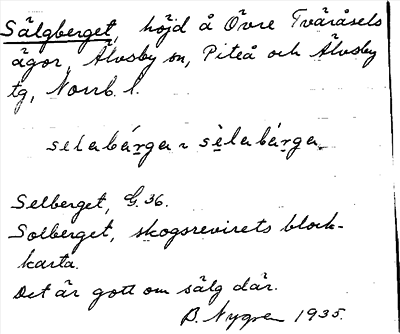 Sälgberget, höjd å Övre Tväråsels
ägor, Älvsby sn, Piteå och Älvsby
tg, Norrb. l.
selabárga ~ sèlabárga
Selberget, G. 36.
Solberget, skogsrevirets block-
karta.
Det är gott om sälg där.
B. Nygren 1935.